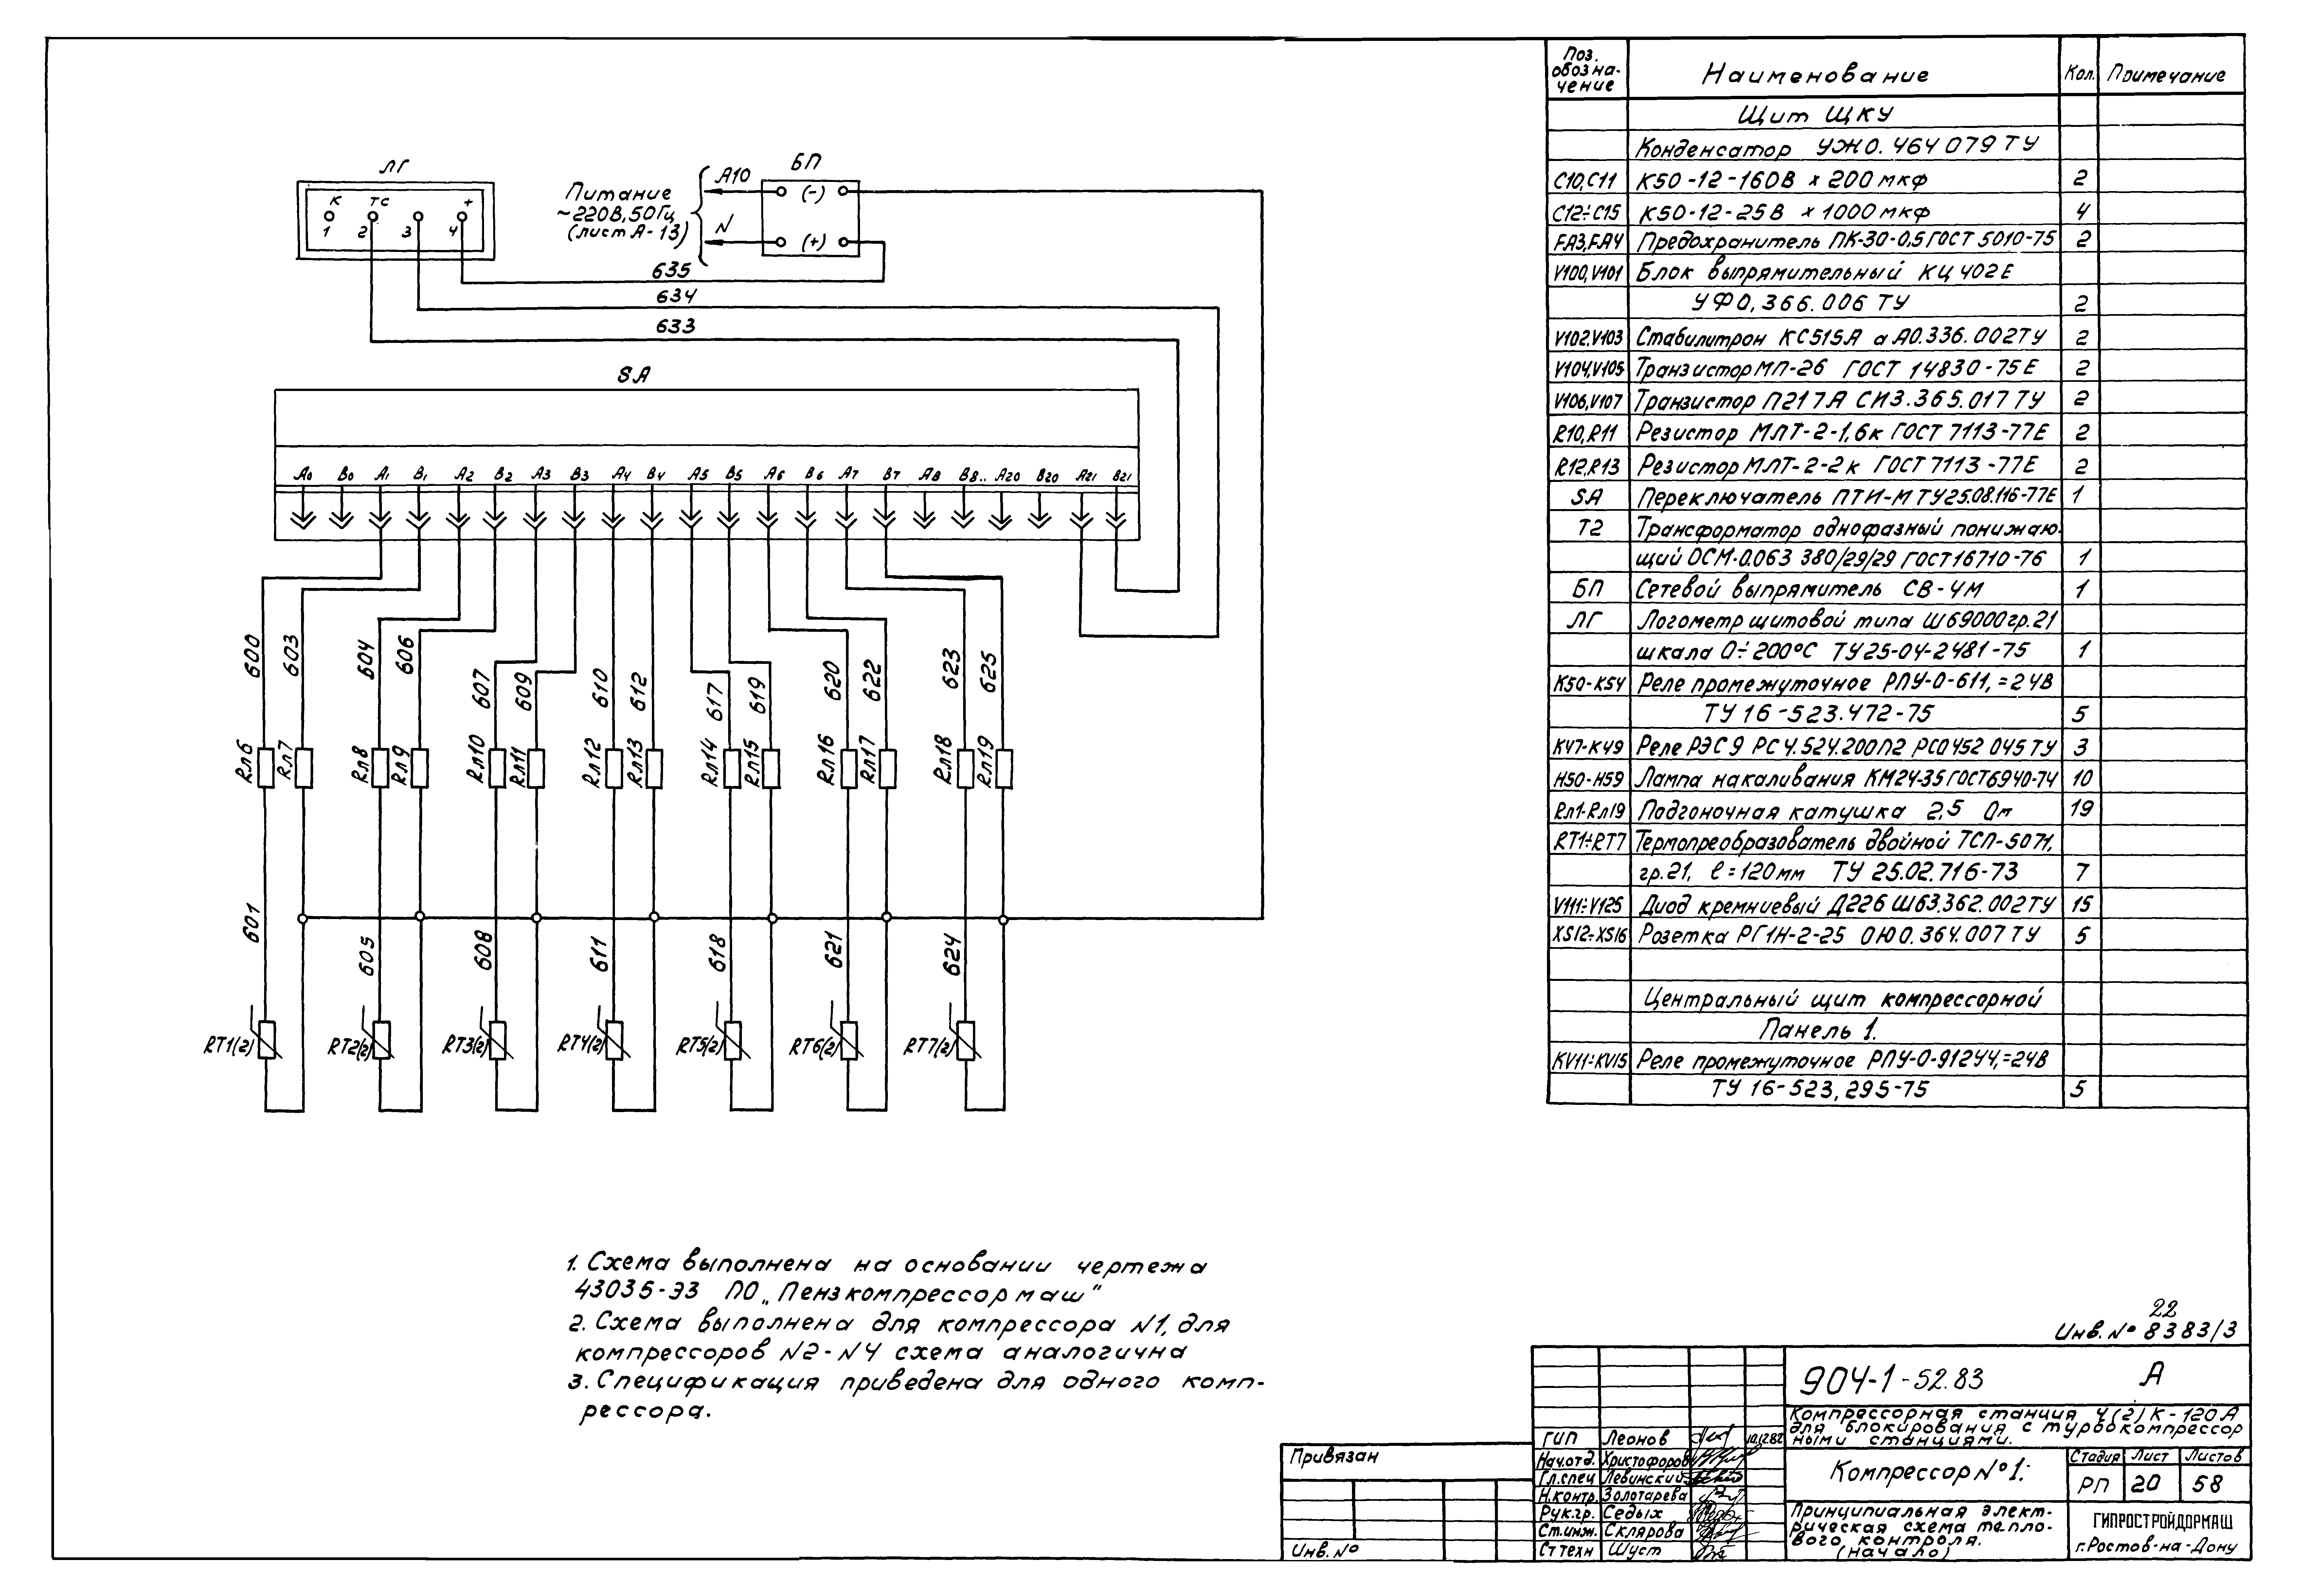 ЛГ
К ТС +
1 2 3 4
Питание
~220В, 50Гц
(лист А-13)
А10
N
БП
(-)
(+)
635
634
633
SA
А0 В0 А1 В1 А2 В2 А3 В3 А4 В4 А5 В5 А6 В6 А7 В7 А8 В8.. А20 В20 А21 В21
600 603 604 606 607 609 610 612 617 619 620 622 623 625
Rл6 Rл7 Rл8 Rл9 Rл10 Rл11 Rл12 Rл13 Rл14 Rл15 Rл16 Rл17 Rл18 Rл19
601 605 608 611 618 621 624
RT1(2) RT2(2) RT3(2) RT4(2) RT5(2) RT6(2) RT7(2)
1. Схема выполнена на основании чертежа
43035-ЭЗ ПО „Пензкомпрессормаш"
2. Схема выполнена для компрессора N1, для
компрессоров N2-N4 схема аналогична
3. Спецификация приведена для одного комп-
рессора.
Поз. обозна- чение Наименование Кол. Примечание
Щит ЩКУ
Конденсатор УЖ0.464 079 ТУ
С10,С11 К50-12-160В х 200 мкф 2
С12÷С15 К50-12-25В х 1000 мкф 4
FA3,FA4 Предохранитель ПК-30-0,5 ГОСТ 5010-75 2
V100,V101 Блок выпрямительный КЦ 402Е
УФ0,366.006 ТУ 2
V102,V103 Стабилитрон КС515А аА0.336.002ТУ 2
V104,V105 Транзистор МП-26 ГОСТ 14830-75Е 2
V106,V107 Транзистор П217А СИ3.365.017 ТУ 2
R10,R11 Резистор МЛТ-2-1,6к ГОСТ 7113-77Е 2
R12,R13 Резистор МЛТ-2-2к ГОСТ 7113-77Е 2
SA Переключатель ПТИ-М ТУ25.08.116-77Е 1
Т2 Трансформатор однофазный понижаю-
щий ОСМ-0.063 380/29/29 ГОСТ 16710-76 1
БП Сетевой выпрямитель СВ-4М 1
ЛГ Логометр щитовой типа Ш69000гр.21
шкала 0÷200°С ТУ25-04-2481-75 1
К50-К54 Реле промежуточное РПУ-0-611,=24В
ТУ 16-523.472-75 5
К47-К49 Реле РЭС9 РС4.524.200П2 РС0452 045 ТУ 3
Н50-Н59 Лампа накаливания КМ24-35 ГОСТ6940-74 10
Rл1-Rл19 Подгоночная катушка 2,5 Ом 19
RT1÷RT7 Термопреобразователь двойной ТСП-5071,
гр.21, ℓ=120мм ТУ 25.02.716-73 7
V111÷V125 Диод кремниевый Д226 Ш63.362.002ТУ 15
XS12÷XS16 Розетка РГ1Н-2-25 ОЮ0.364.007 ТУ 5
Центральный щит компрессорной
Панель 1.
KV11÷KV15 Реле промежуточное РПУ-0-91244,=24В
ТУ 16-523,295-75 5
22
Инв.№ 8383/3
904-1-52.83 А
Компрессорная станция 4(2)К-120А
для блокирования с турбокомпрессор
ными станциями.
ГИП Леонов 10.12.82
Нач.отд. Христофоров
Гл.спец Левинский
Н.контр. Золотарева
Рук.гр. Седых
Ст.инж. Склярова
Ст техн Шуст
Компрессор №1.
Стадия Лист Листов
РП 20 58
Принципиальная элект-
рическая схема тепло-
вого контроля.
(начало)
ГИПРОСТРОЙДОРМАШ
г.Ростов-на-Дону
Привязан
Инв.№